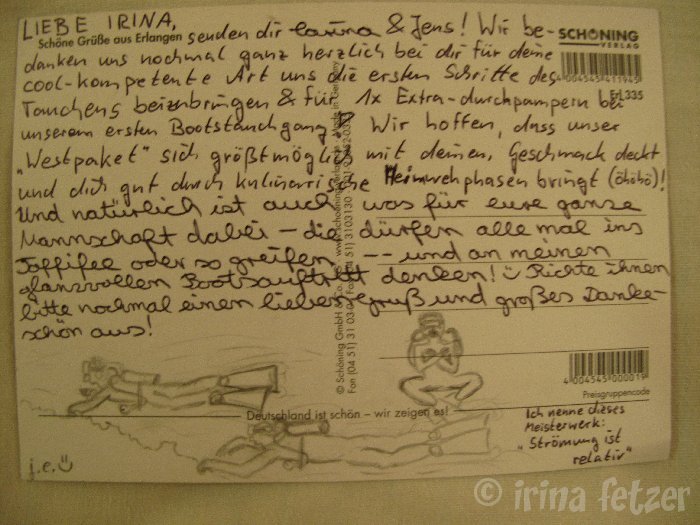 LIEBE IRINA,
Schöne Grüße aus Erlangen
senden dir Laura & Jens! Wir be-
SCHÖNING
VERLAG
danken uns nochmal ganz herzlich bei dir für deine
cool-kompetente Art uns die ersten Schritte des
4 004545 411945
Tauchens beizubringen & für 1x Extra-durchpampern bei
ErL335
unserem ersten Bootstauchgang Wir hoffen, dass unser
„Westpaket" sich größtmöglich mit deinem Geschmack deckt
und dich gut durch kulinarische Heimwehphasen bringt (öhöhö)!
Und natürlich ist auch was für eure ganze
Mannschaft dabei – die dürfen alle mal ins
Toffifee oder so greifen -- und an meinen
glanzvollen Bootsauftritt denken! Richte ihnen
bitte nochmal einen lieben Gruß und großes Danke-
schön aus!
© Schöning GmbH & Co.
4 004545 000019
Preisgruppencode
Deutschland ist schön – wir zeigen es!
Ich nenne dieses
Meisterwerk:
„Strömung ist
relativ"
j.e.
© irina fetzer